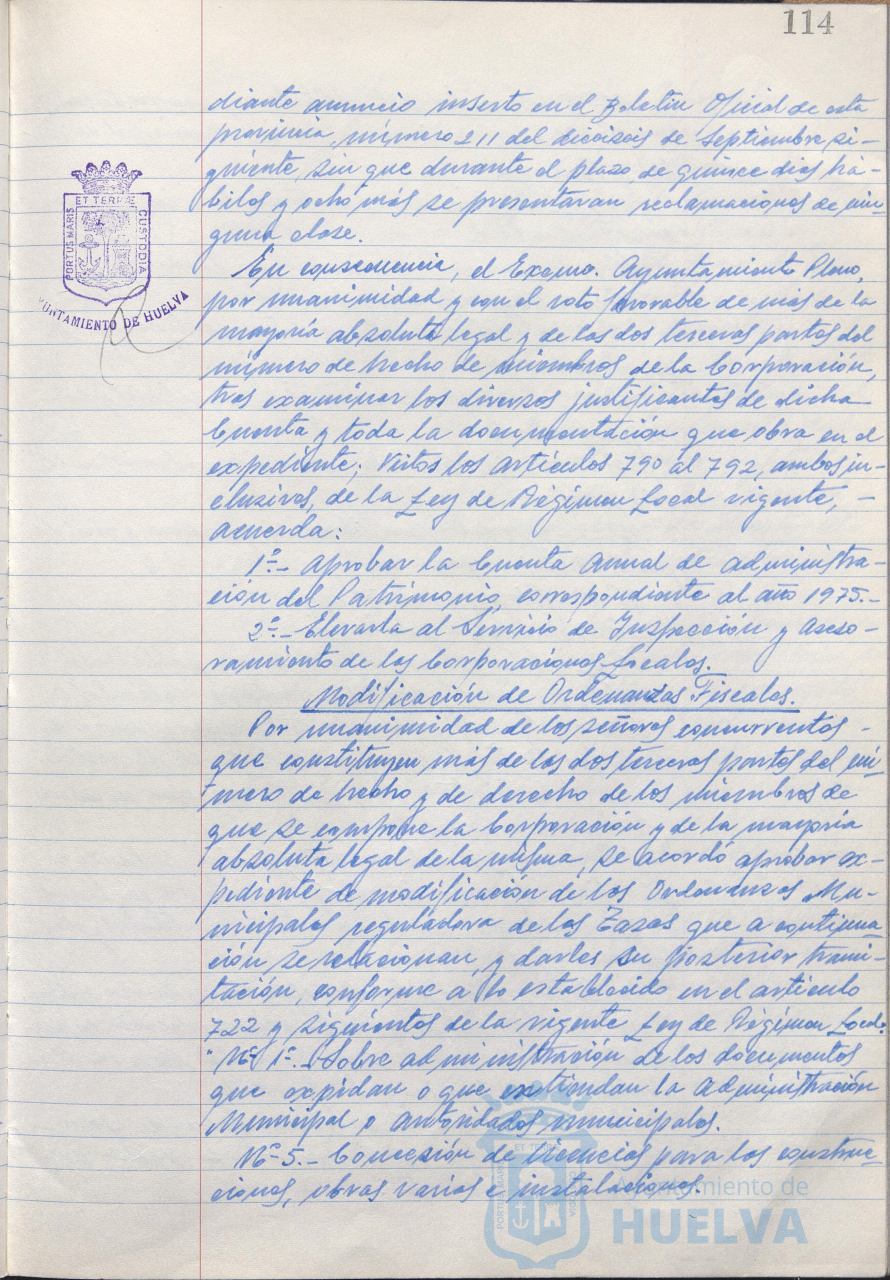 114
diante anuncio inserto en el Boletín Oficial de esta
provincia, número 211 del dieciseis de Septiembre si-
guiente, sin que durante el plazo de quince dias há-
biles y ocho más se presentaran reclamaciones de nin-
guna clase.
En consecuencia, el Excmo. Ayuntamiento Pleno,
por unanimidad y con el voto favorable de más de la
mayoría absoluta legal y de las dos terceras partes del
número de hecho de miembros de la Corporación,
tras examinar los diversos justificantes de dicha
Cuenta y toda la documentación que obra en el
expediente; Vistos los artículos 790 al 792, ambos in-
clusives, de la Ley de Régimen Local vigente, -
acuerda:
1º.- Aprobar la Cuenta Anual de administra-
ción del Patrimonio, correspondiente al año 1975.-
2º.- Elevarla al Servicio de Inspección y Aseso-
ramiento de las Corporaciones Locales.
Modificación de Ordenanzas Fiscales.
Por unanimidad de los señores concurrentes -
que constituyen más de las dos terceras partes del nú-
mero de hecho y de derecho de los miembros de
que se compone la Corporación y de la mayoría
absoluta legal de la misma, se acordó aprobar ex-
pediente de modificación de las Ordenanzas Mu-
nicipales reguladora de las Tasas que a continua-
ción se relacionan, y darles su posterior trami-
tación, conforme a lo establecido en el artículo
722 y siguientes de la vigente Ley de Régimen Local:
"Nº 1º.- Sobre administración de los documentos
que expidan o que extiendan la Administración
Municipal o autoridades municipales.
Nº 5.- Concesión de licencias para las construc-
ciones, obras varias e instalaciones.
PORTUS MARIS
ET TERRAE
CUSTODIA
AYUNTAMIENTO DE HUELVA
ET TERRAE
PORTUS MARIS
Ayuntamiento de
HUELVA